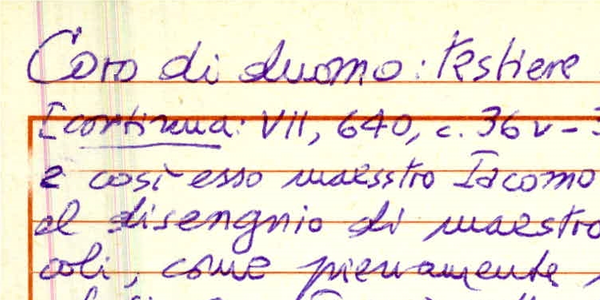 Coro di duomo: testiere
[continua: VII, 640, c. 36v - 3
e così esso maesstro Iacomo
al disengnio di maestro
coli, come pienamente